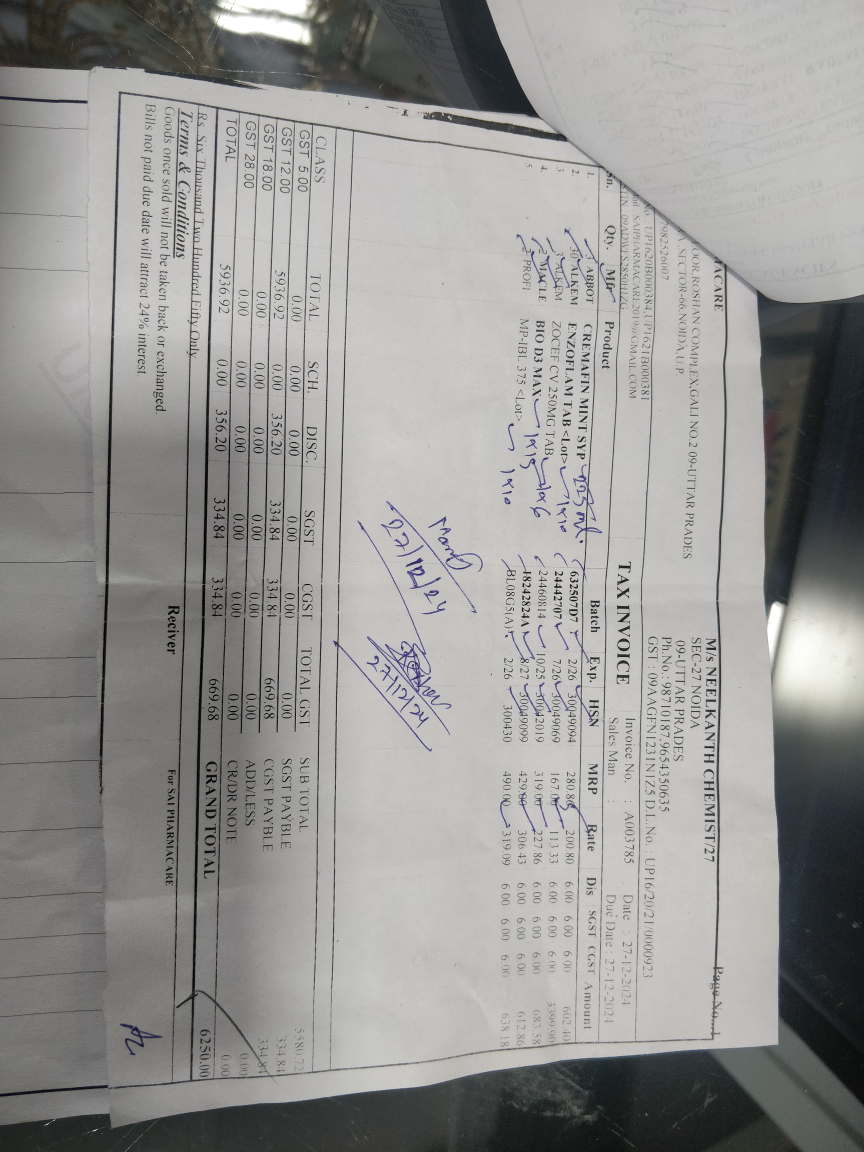 MACARE
OOR,ROSHAN COMPLEX,GALI NO.2 09-UTTAR PRADES
SECTOR-66,NOIDA,U.P.
7982526007
UP1620B000384,UP1621B000381
SAIPHARMACARE2019@GMAIL.COM
M/s NEELKANTH CHEMIST/27
SEC-27 NOIDA
09-UTTAR PRADES
Ph.No.: 98710187,9654350635
GST : 09AAGFN1231N1Z5 D.L.No. : UP16/20/21/0000923
Page No..1
TAX INVOICE
Invoice No. : A003785 Date : 27-12-2024
Sales Man : Due Date : 27-12-2024
Sn. Qty. Mfr Product Batch Exp. HSN MRP Rate Dis SGST CGST Amount
1. 3 ABBOT CREMAFIN MINT SYP 225 ml. 632507D7 2/26 30049094 280.86 200.80 6.00 6.00 6.00 602.40
2. 30 ALKEM ENZOFLAM TAB <Lot> 1x10 24442707 7/26 30049069 167.00 113.33 6.00 6.00 6.00 3399.90
3. 3 ALKEM ZOCEF CV 250MG TAB 1x6 24460814 10/25 30042019 319.00 227.86 6.00 6.00 6.00 683.58
4. 2 MACLE BIO D3 MAX 1x15 18242824A 8/27 30049099 429.00 306.43 6.00 6.00 6.00 612.86
5. 2 PROFI MP-IBL 375 <Lot> 1x10 BL08G5(A) 2/26 300430 490.00 319.09 6.00 6.00 6.00 638.18
27/12/24
27/12/24
CLASS TOTAL SCH. DISC. SGST CGST TOTAL GST
GST 5.00 0.00 0.00 0.00 0.00 0.00 0.00
GST 12.00 5936.92 0.00 356.20 334.84 334.84 669.68
GST 18.00 0.00 0.00 0.00 0.00 0.00 0.00
GST 28.00 0.00 0.00 0.00 0.00 0.00 0.00
TOTAL 5936.92 0.00 356.20 334.84 334.84 669.68
SUB TOTAL 5580.72
SGST PAYBLE 334.84
CGST PAYBLE 334.84
ADD/LESS 0.00
CR/DR NOTE 0.00
GRAND TOTAL 6250.00
Rs. Six Thousand Two Hundred Fifty Only
Terms & Conditions
Goods once sold will not be taken back or exchanged.
Bills not paid due date will attract 24% interest
Reciver
For SAI PHARMACARE